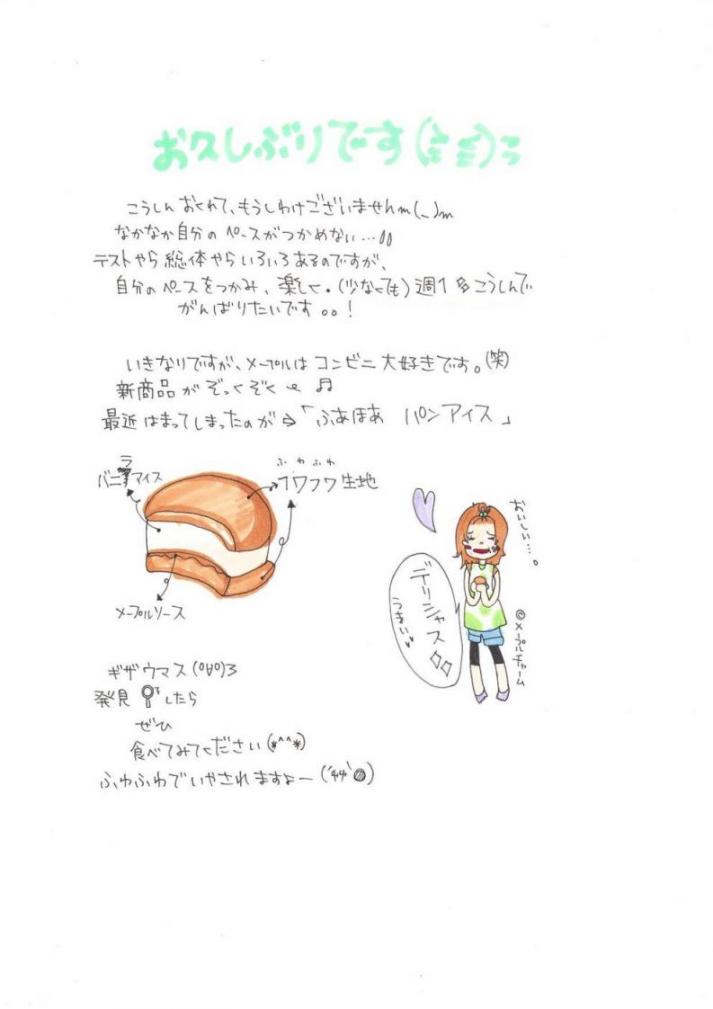 お久しぶりです(ミ ミ)っ
こうしん おくれて、もうしわけございませんm(_)m
なかなか自分の ペースがつかめない…
テストやら 総体やら いろいろ あるのですが、
自分の ペースをつかみ、楽しく・(少なくても)週1 多こうしんで
がんばりたいです。。!
いきなりですが、メープルは コンビニ 大好きです。(笑)
新商品が ぞっくぞく ♬
最近 はまってしまったのが ⇒「ふあほあ パンアイス」
バニラアイス
ふわふわ
フワフワ生地
メープルソース
おいしい…。
デリシャス
うまい
©メープルチャーム
ギザウマス(º∀º)3
発見 したら
ぜひ
食べてみてください(*^^*)
ふわふわでいやされますよー